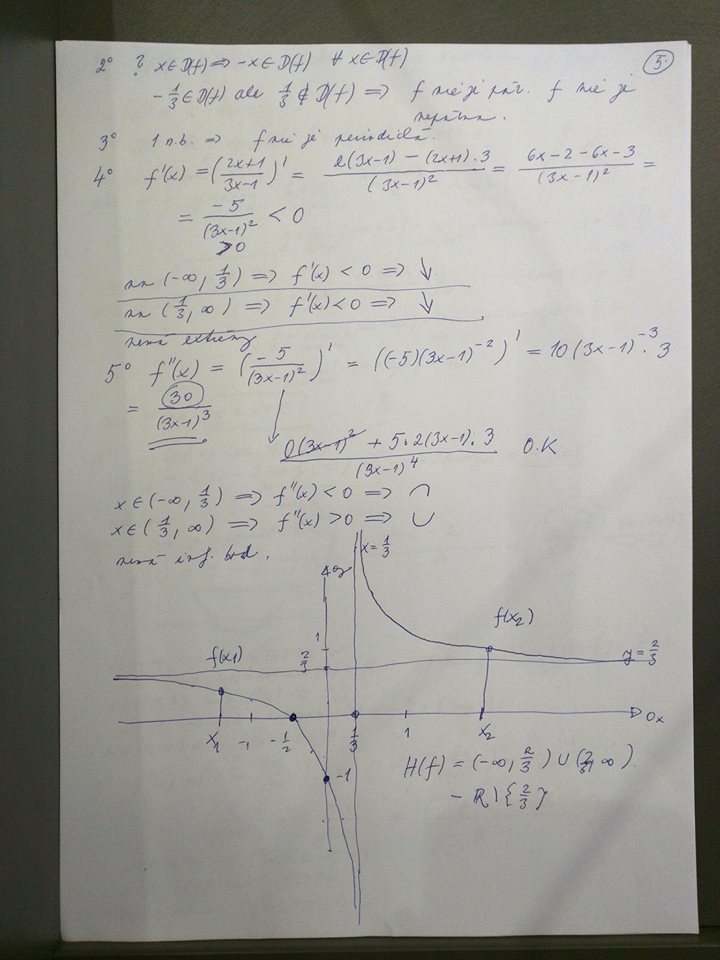 5.
2° ? x∈D(f) ⇒ -x∈D(f) ∀ x∈D(f)
-1/3 ∈ D(f) ale 1/3 ∉ D(f) ⇒ f nie je pár. f nie je
nepárna.
3° 1 n.b. ⇒ f nie je periodická.
4° f'(x) = ((2x+1)/(3x-1))' = (2(3x-1) - (2x+1).3)/(3x-1)² = (6x-2-6x-3)/(3x-1)² =
= -5/(3x-1)² < 0
>0
na (-∞, 1/3) ⇒ f'(x) < 0 ⇒ ↓
na (1/3, ∞) ⇒ f'(x) < 0 ⇒ ↓
nemá extrémy
5° f''(x) = (-5/(3x-1)²)' = ((-5)(3x-1)⁻²)' = 10(3x-1)⁻³.3
= 30/(3x-1)³
(0(3x-1)² + 5.2(3x-1).3)/(3x-1)⁴ O.K
x∈(-∞, 1/3) ⇒ f''(x) < 0 ⇒ ∩
x∈(1/3, ∞) ⇒ f''(x) > 0 ⇒ ∪
nemá inf. bod.
y
x = 1/3
f(x₂)
1
f(x1)
2/3
y = 2/3
x₁ -1 -1/2 1/3 1 x₂ 0x
-1
H(f) = (-∞, 2/3) ∪ (2/3, ∞).
- R \ {2/3}